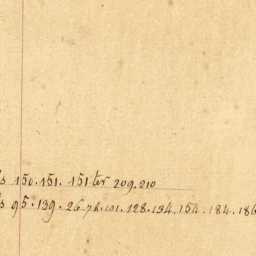 150. 151. 151 ter 209. 210
95. 139. 26. 78. 101. 128. 134. 154. 184. 186